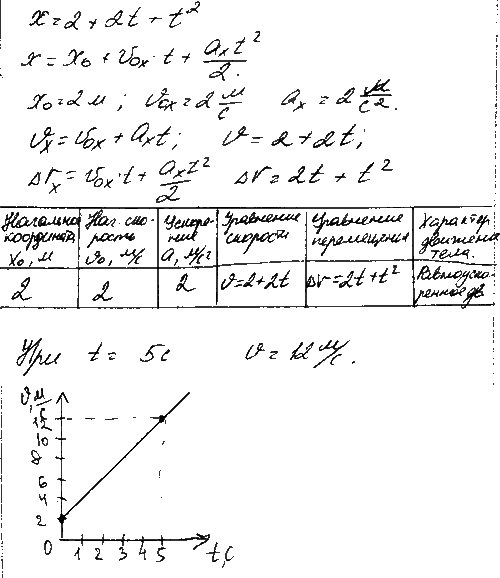 x=2+2t+t²
x=x₀+v₀ₓ·t+aₓt²/2.
x₀=2м; v₀ₓ=2 м/с aₓ=2 м/с².
vₓ=v₀ₓ+aₓt; v=2+2t;
Δrₓ=v₀ₓ·t+aₓt²/2 Δr=2t+t²
Начальная координата x₀, м | Нач. скорость v₀, м/с | Ускорение a, м/с² | Уравнение скорости | Уравнение перемещения | Характер движения тела.
2 | 2 | 2 | v=2+2t | Δr=2t+t² | Равноускоренное дв.
При t= 5с v=12 м/с.
v, м/с
12
10
8
6
4
2
0 1 2 3 4 5 t,с